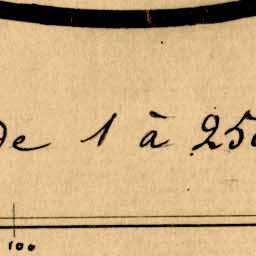 de 1 à 250
100